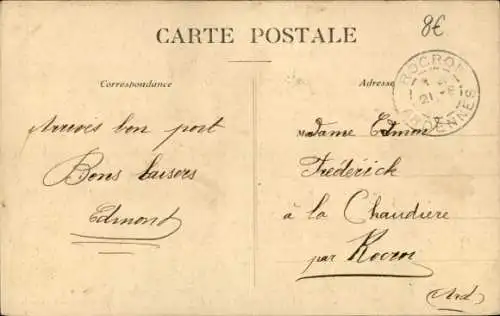 8€
CARTE POSTALE
Correspondance
Adresse
ROCROI
21
ARDENNES
Arrivés bon port
Bons baisers
Edmond
Madame Edmond
Fréderick
à la Chaudiere
par Rocroi
(Ard.)